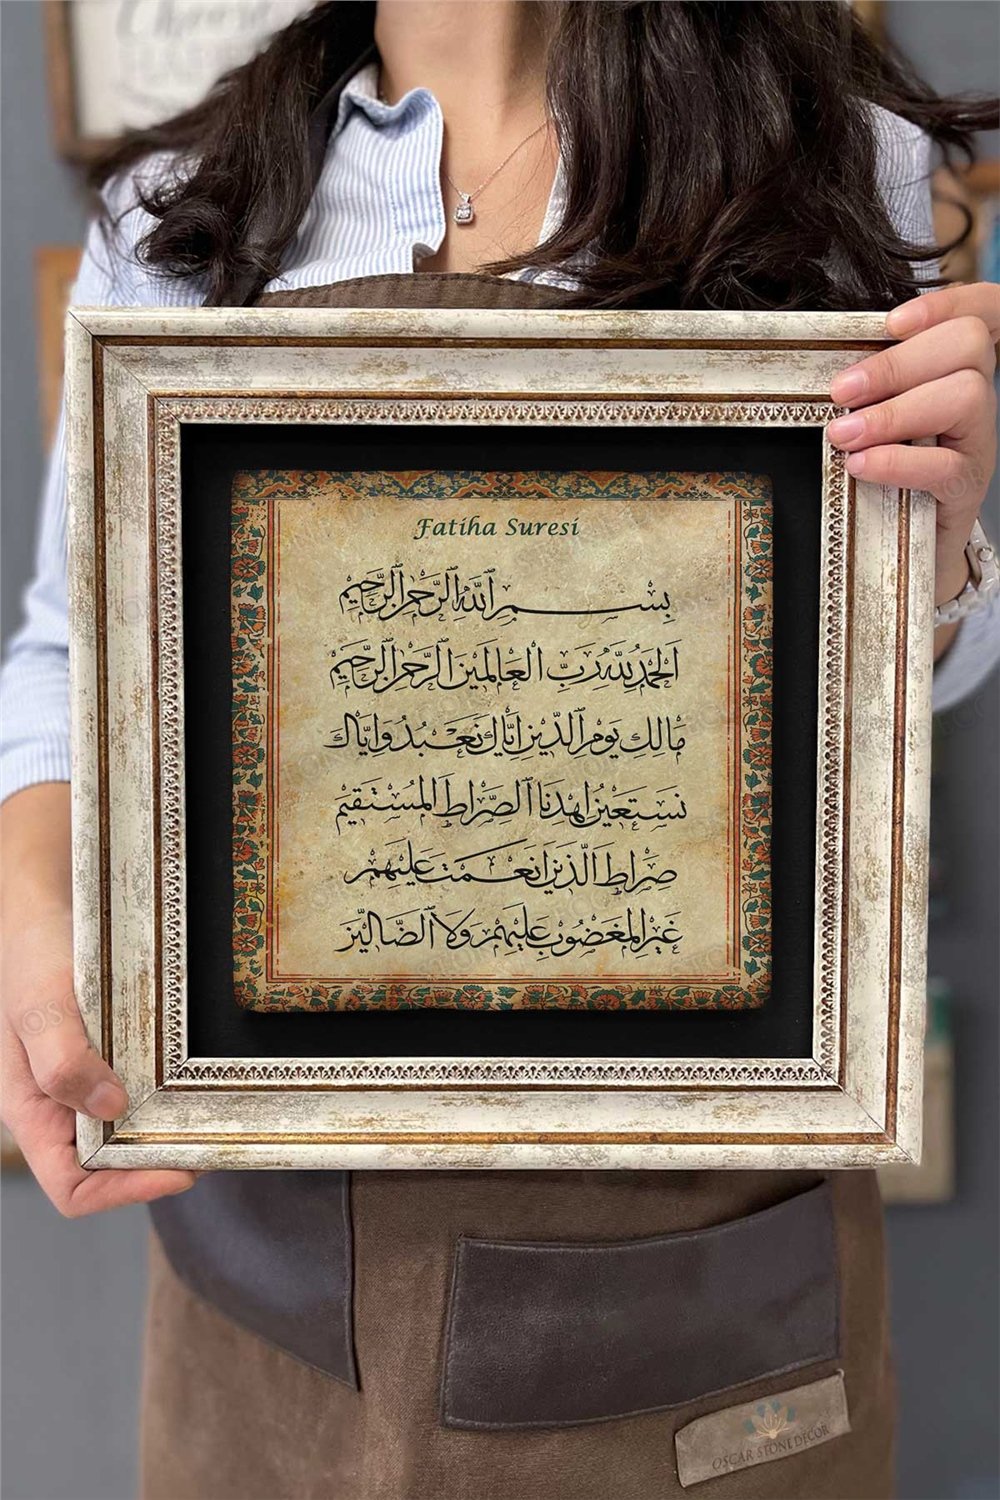 Fatiha Suresi
بسم الله الرحمن الرحيم
الحمد لله رب العالمين الرحمن الرحيم
مالك يوم الدين إياك نعبد وإياك
نستعين اهدنا الصراط المستقيم
صراط الذين أنعمت عليهم
غير المغضوب عليهم ولا الضالين
OSCAR STONE DECOR